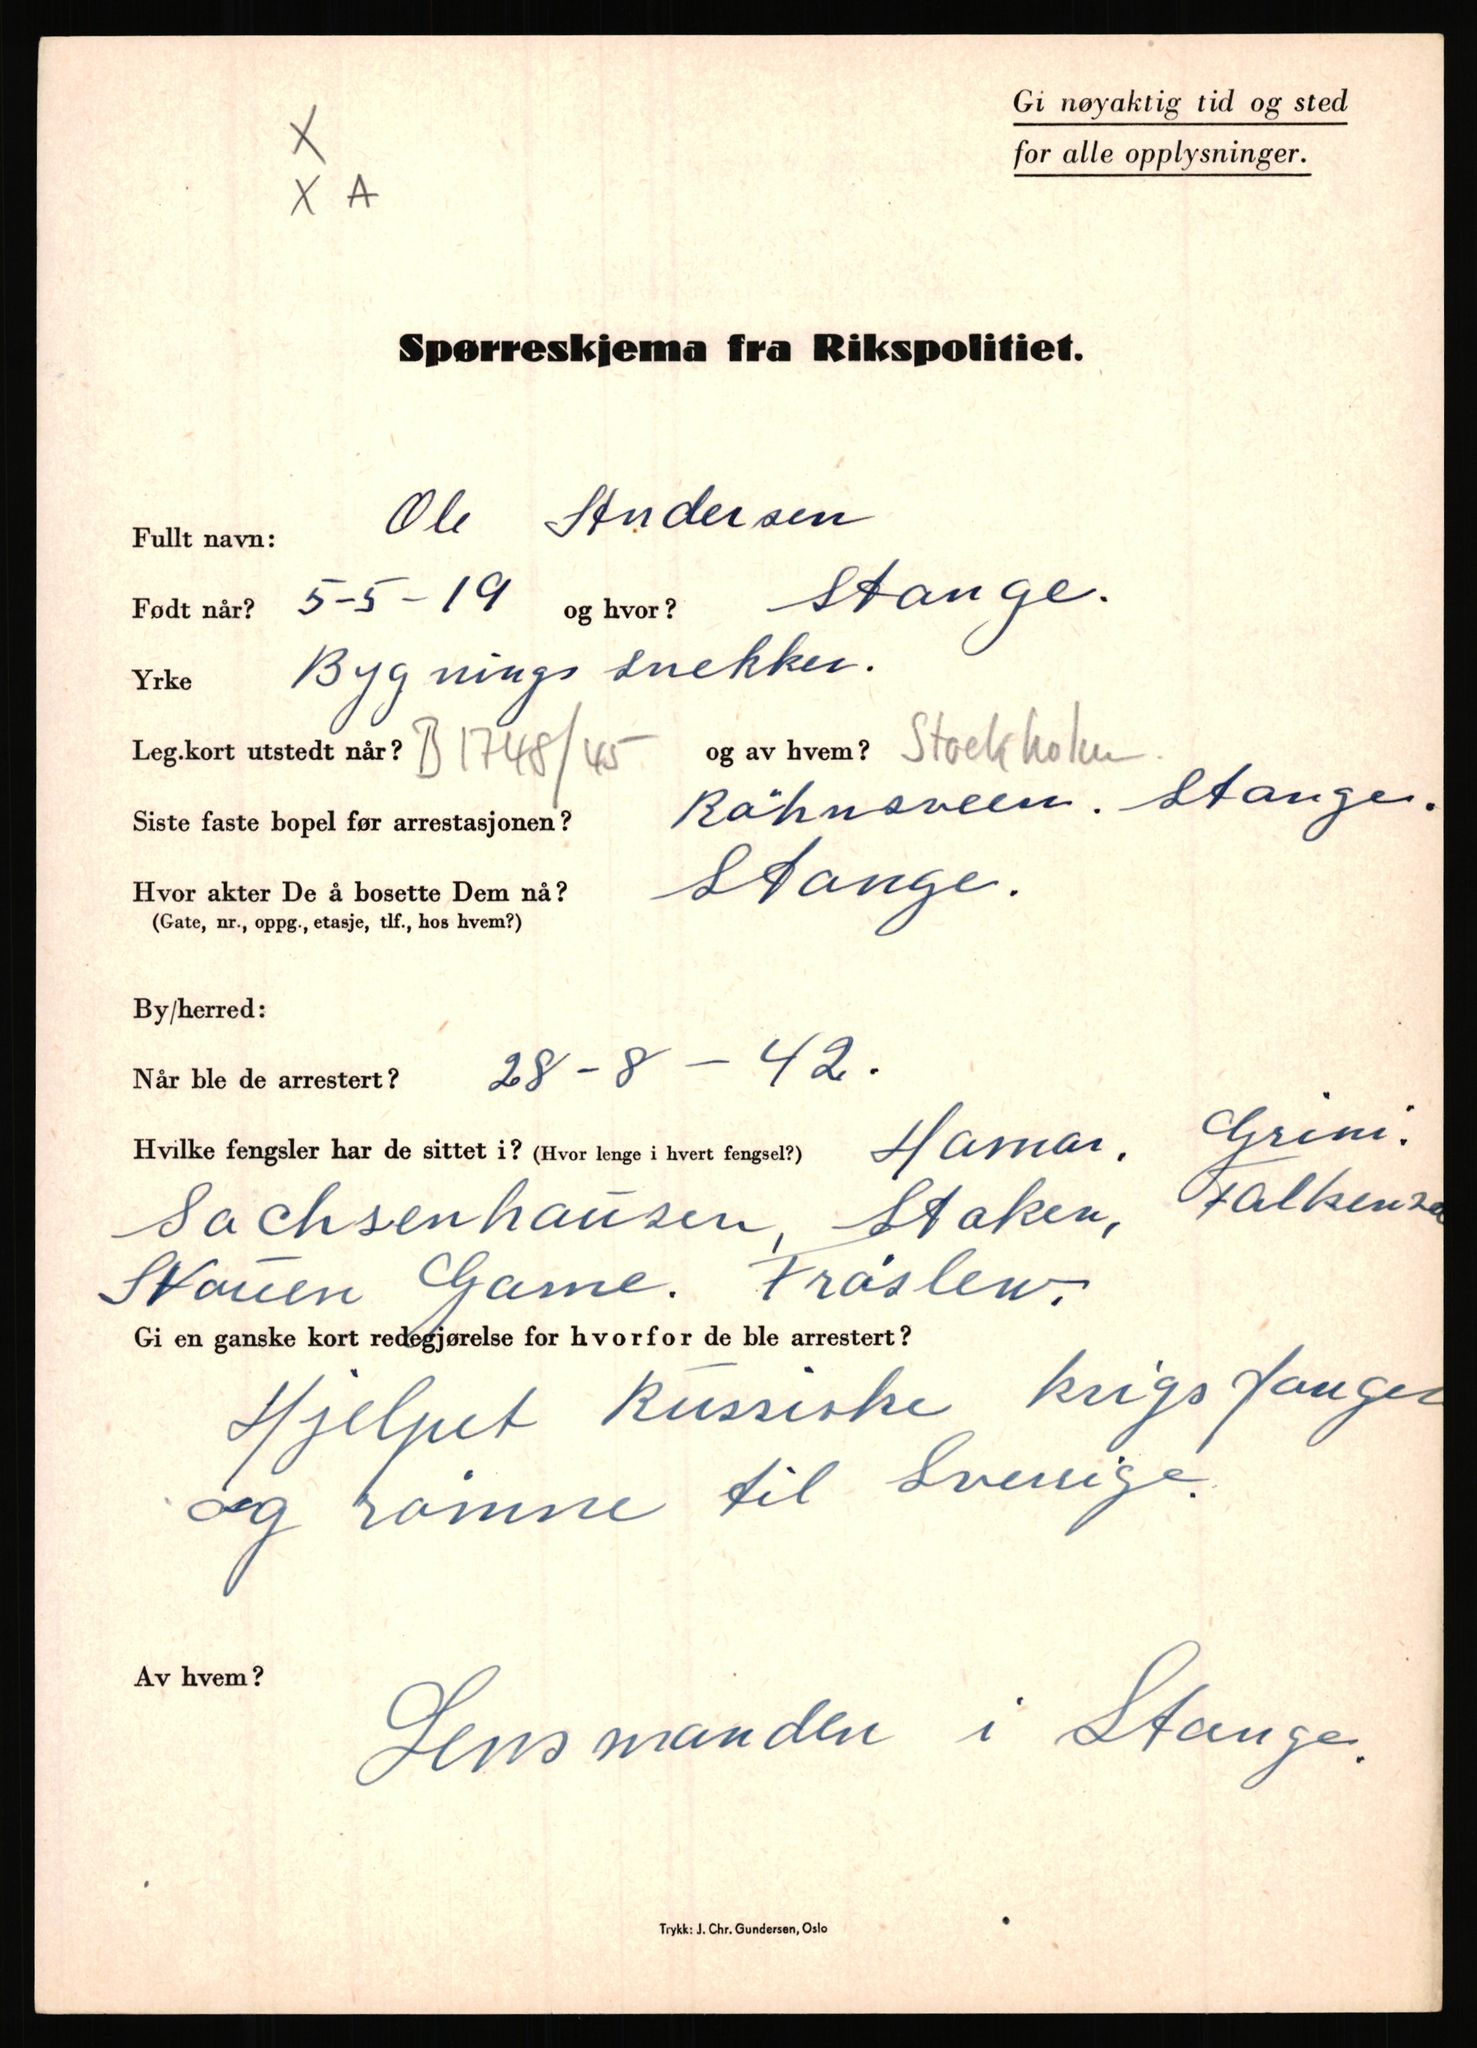 Gi nøyaktig tid og sted
for alle opplysninger.
X
X A
Spørreskjema fra Rikspolitiet.
Fullt navn: Ole Andersen
Født når? 5-5-19 og hvor? Stange.
Yrke Bygnings snekker.
Leg.kort utstedt når? B1748/45 og av hvem? Stockholm
Siste faste bopel før arrestasjonen? Råhnsveen. Stange.
Hvor akter De å bosette Dem nå? Stange.
(Gate, nr., oppg., etasje, tlf., hos hvem?)
By/herred:
Når ble de arrestert? 28-8-42.
Hvilke fengsler har de sittet i? (Hvor lenge i hvert fengsel?) Hamar. Grini.
Sachsenhausen, Staken,
Gamme. Fröslew.
Gi en ganske kort redegjørelse for hvorfor de ble arrestert?
Hjelpet Russiske krigsfanger
og römne til Sverige.
Av hvem?
Lensmanden i Stange.
Trykk: J. Chr. Gundersen, Oslo